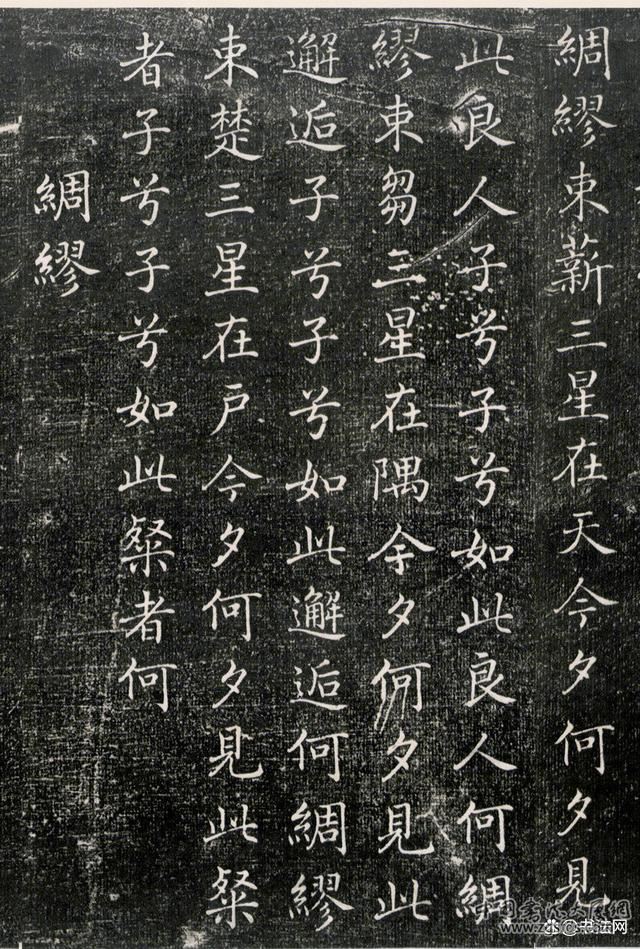 綢繆束薪三星在天今夕何夕見
此良人子兮子兮如此良人何綢
繆束芻三星在隅余夕何夕見此
邂逅子兮子兮如此邂逅何綢繆
束楚三星在戶今夕何夕見此粲
者子兮子兮如此粲者何
綢繆
书法网